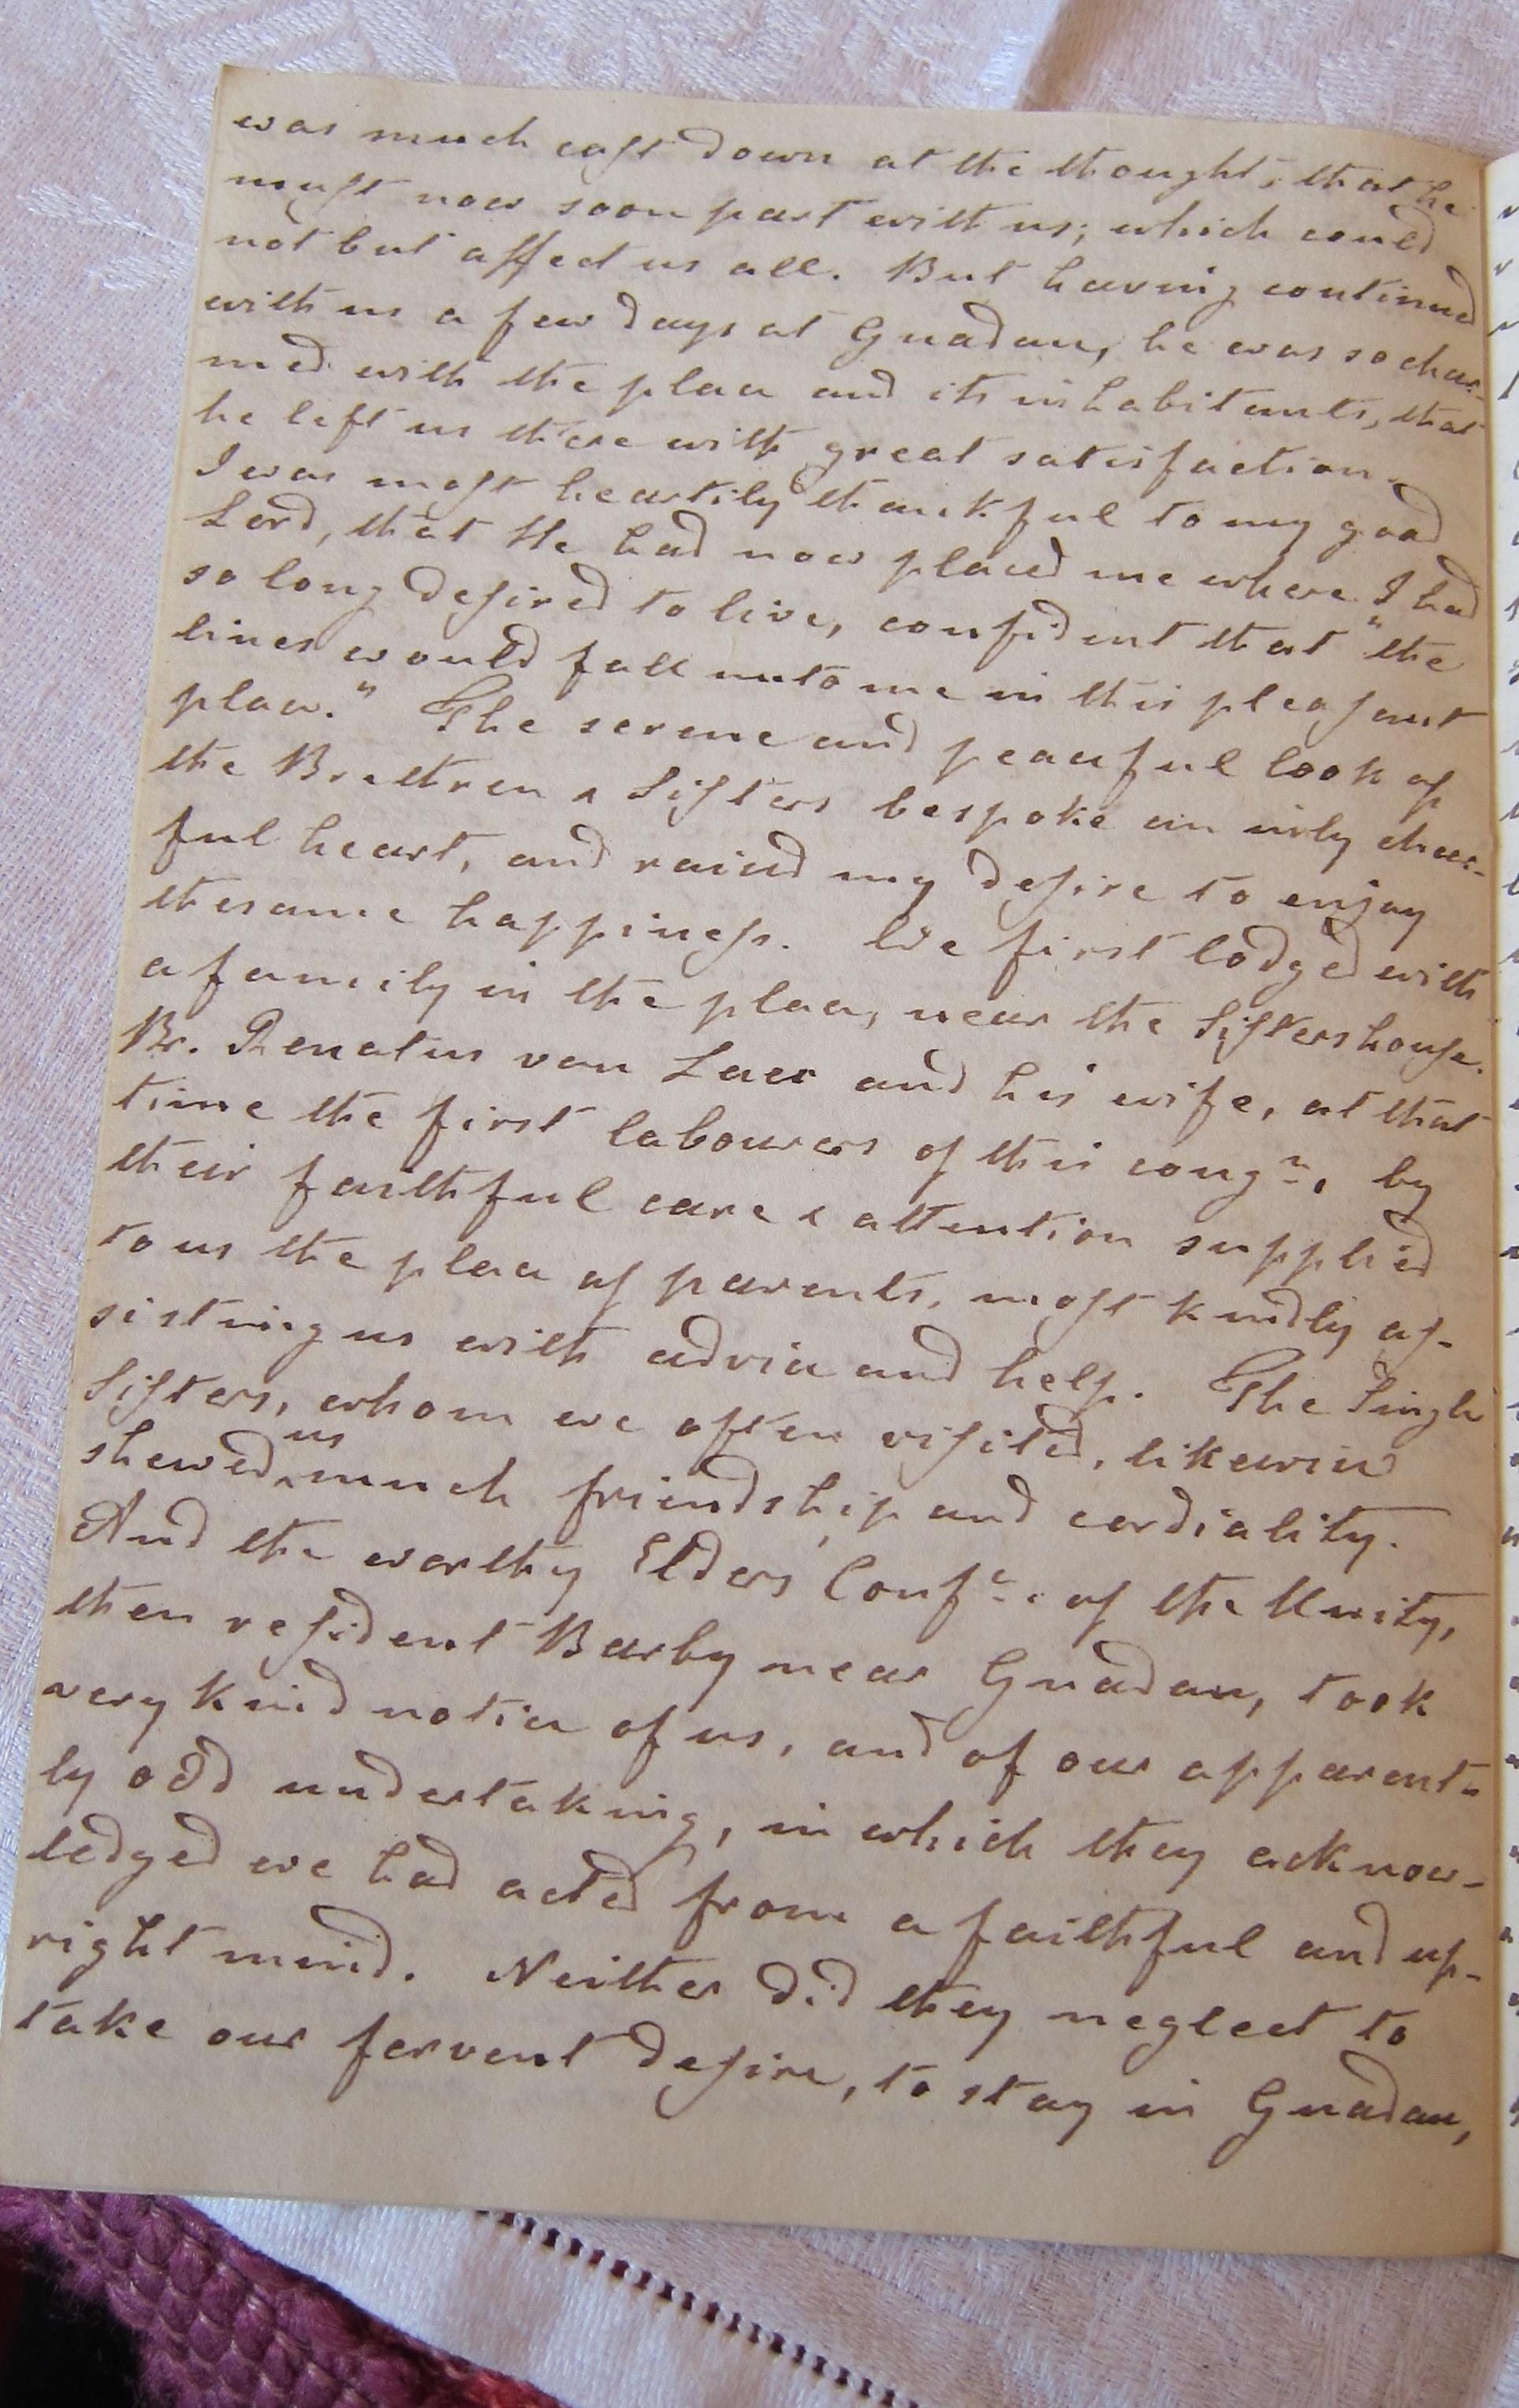 was much cast down at the thought, that he
must now soon part with us; which could
not but affect us all. But having continued
with us a few days at Gnadau, he was so char-
med with the place and its inhabitants, that
he left us there with great satisfaction.
I was most heartily thankful to my good
Lord, that He had now placed me where I had
so long desired to live, confident that "the
lines would fall unto me in this pleasant
place." The serene and peaceful look of
the Brethren & Sisters bespoke an inly cheer-
ful heart, and raised my desire to enjoy
the same happiness. We first lodged with
a family in the place, near the Sisters house.
Br. Renatus van Laer and his wife, at that
time the first labourers of this congn., by
their faithful care & attention supplied
to us the place of parents, most kindly as-
sisting us with advice and help. The Single
Sisters, whom we often visited, likewise
shewed us much friendship and cordiality.
And the worthy Elders' Confc. of the Unity,
then resident Barby near Gnadau, took
very kind notice of us, and of our apparent-
ly odd undertaking, in which they acknow-
ledged we had acted from a faithful and up-
right mind. Neither did they neglect to
take our fervent desire, to stay in Gnadau,